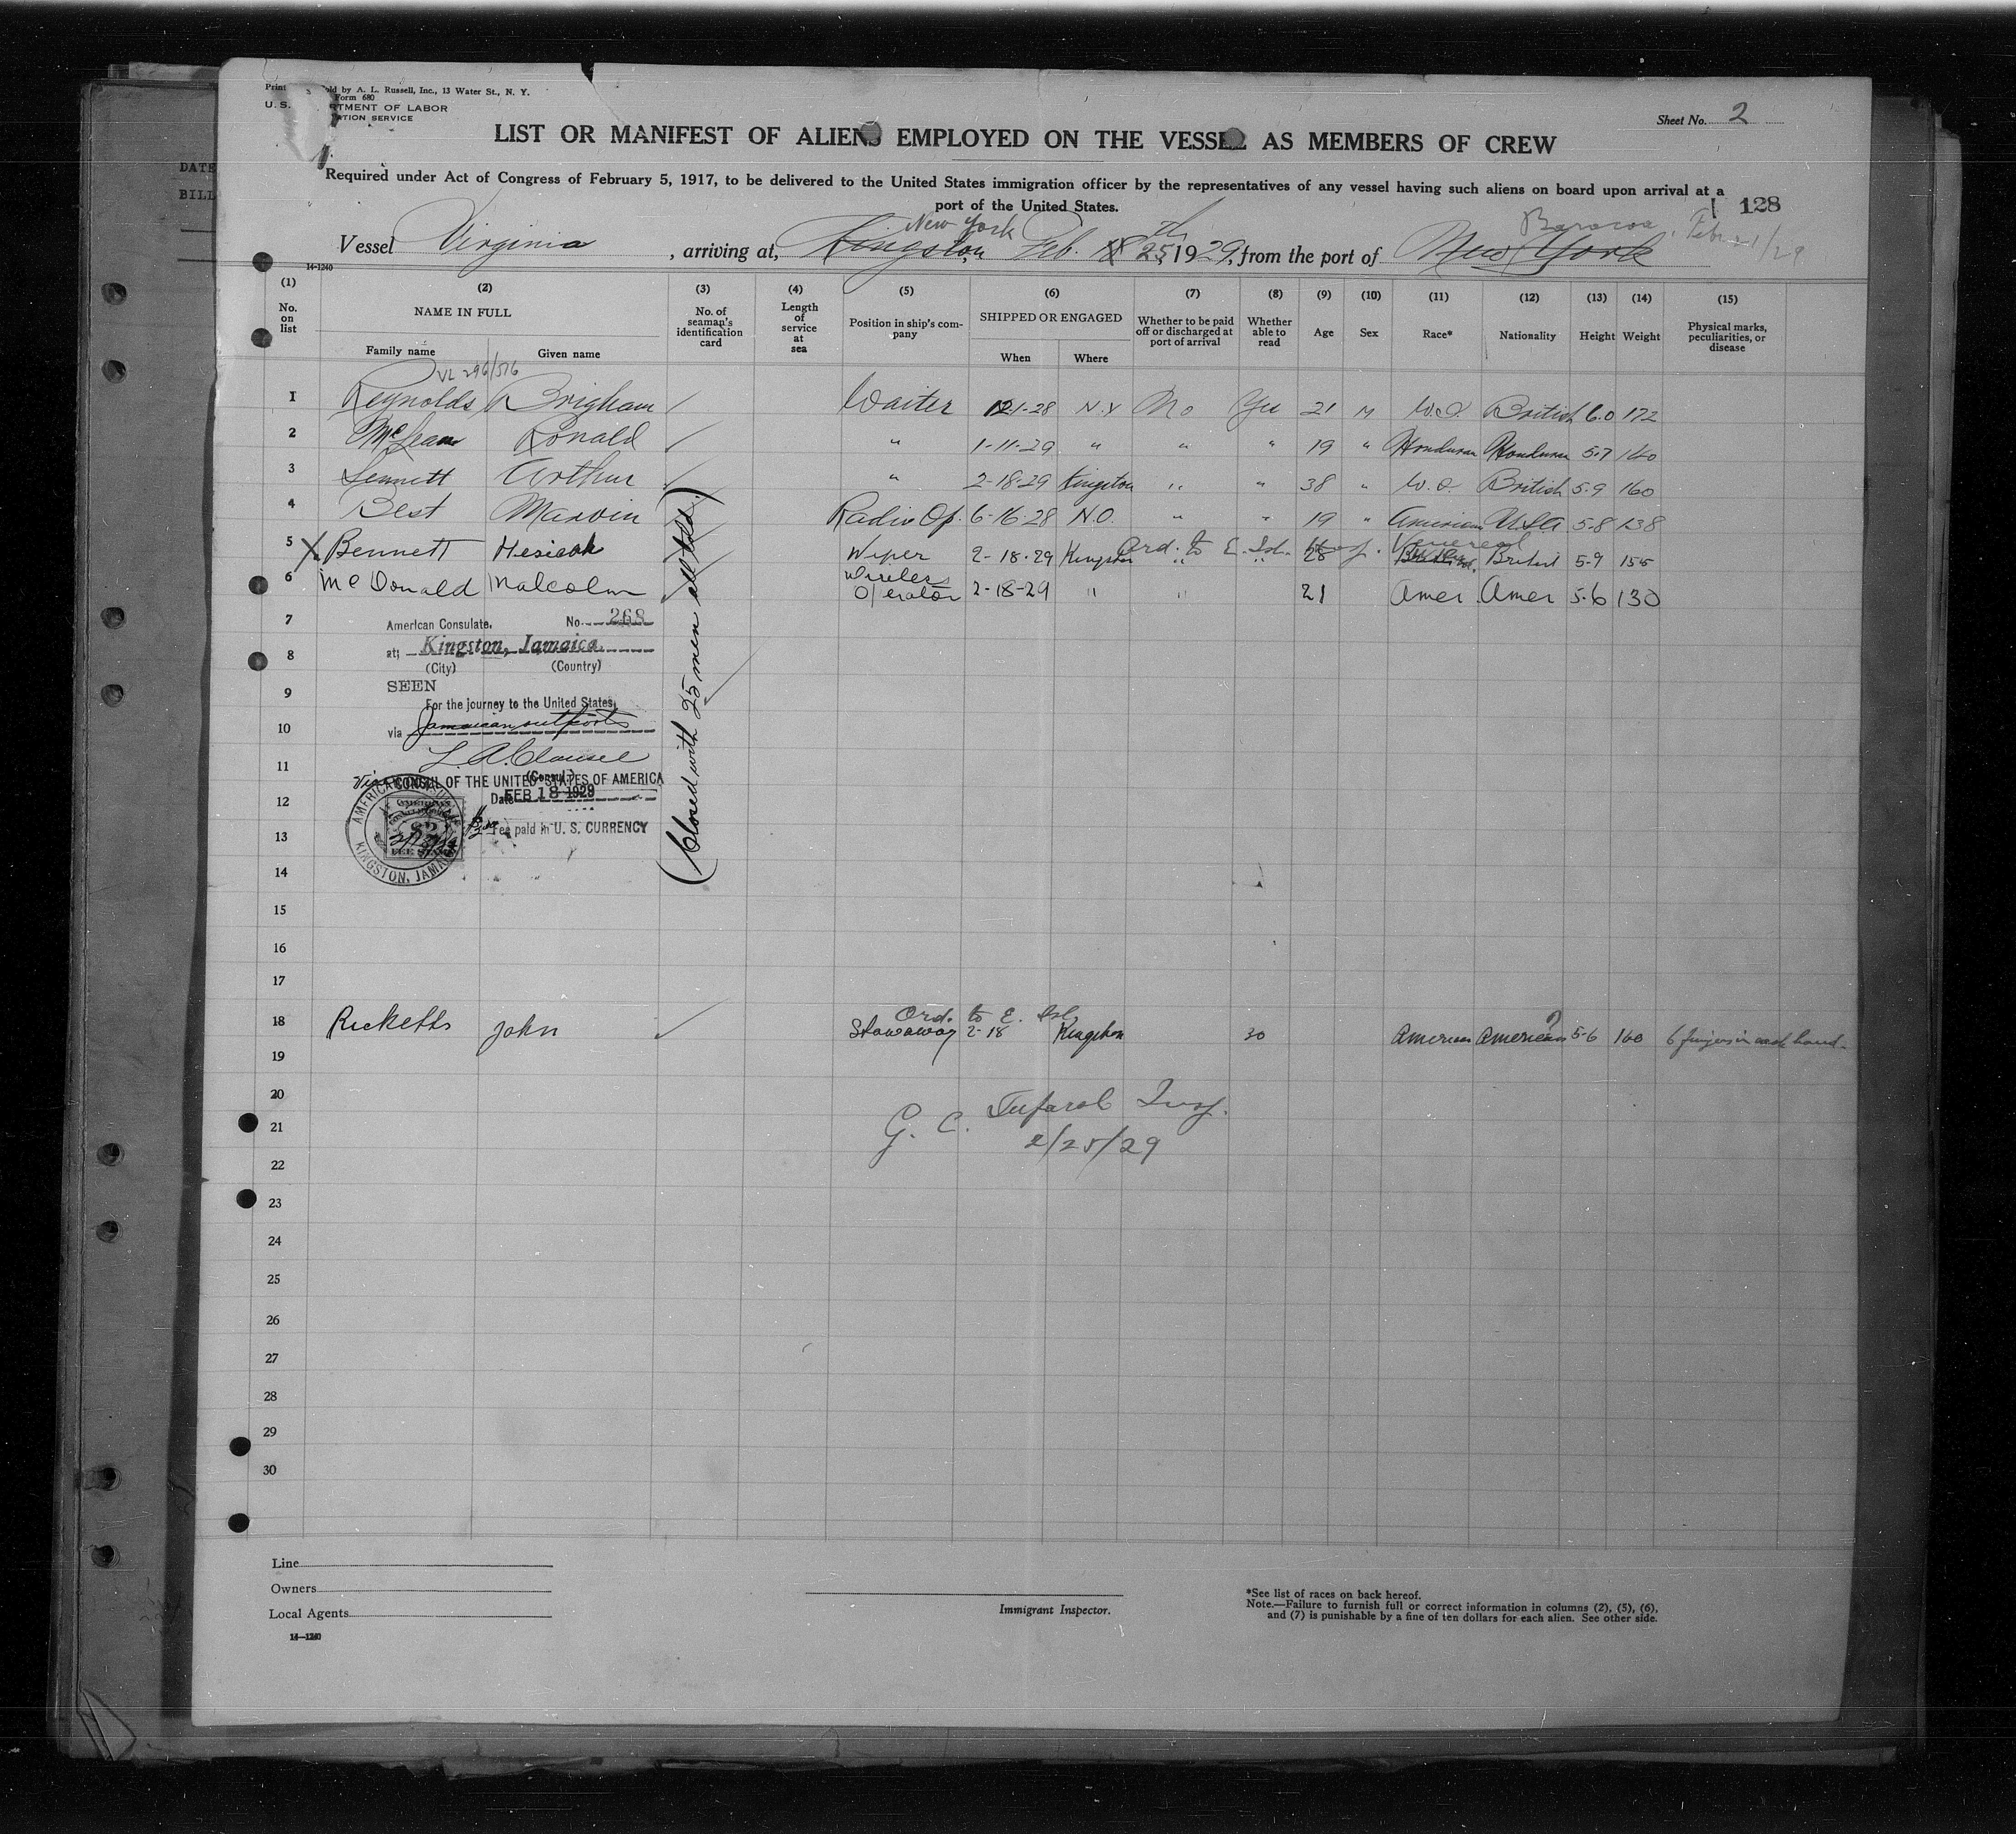 DATE
BILL
Print ld by A. L. Russell, Inc., 13 Water St., N. Y.
Form 680
U. S. RTMENT OF LABOR
ATION SERVICE
Sheet No. 2
LIST OR MANIFEST OF ALIENS EMPLOYED ON THE VESSEL AS MEMBERS OF CREW
Required under Act of Congress of February 5, 1917, to be delivered to the United States immigration officer by the representatives of any vessel having such aliens on board upon arrival at a
port of the United States.
128
New York th Baracoa, Feb. 21/29
Vessel Virginia, arriving at, Kingston, Feb. 18 25, 1929, from the port of New York
14-1240
(1) (2) (3) (4) (5) (6) (7) (8) (9) (10) (11) (12) (13) (14) (15)
No. on list
NAME IN FULL
Family name Given name
No. of seaman's identification card
Length of service at sea
Position in ship's company
SHIPPED OR ENGAGED
When Where
Whether to be paid off or discharged at port of arrival
Whether able to read
Age
Sex
Race*
Nationality
Height
Weight
Physical marks, peculiarities, or disease
VL 296/516
1 Reynolds Brigham / Waiter 121-28 N.Y No Yes 21 M W.I. British 6.0 172
2 McLean Ronald / " 1-11-29 " " " 19 " Honduran Honduran 5-7 140
3 Sennett Arthur / " 2-18-29 Kingston " " 38 " W.I. British 5-9 160
4 Best Marvin Radio Op. 6-16-28 N.O. " " 19 " American U.S.A 5-8 138
Ord. to E. Isl. Hosp. Venereal
5 X Bennett Wiper 2-18-29 Kingston " " 28 British 5-9 155
6 McDonald Malcolm Wireless Operator 2-18-29 " " 21 Amer. Amer 5-6 130
(Closed with 25 men all told)
7
American Consulate, No. 268
at; Kingston, Jamaica.
(City) (Country)
8
SEEN
9
For the journey to the United States,
via Jamaican outports
10
11
Vice CONSUL OF THE UNITED STATES OF AMERICA
(Consul)
Date FEB 18 1929
12
Fee paid in U. S. CURRENCY
AMERICAN
KINGSTON, JAMAICA
13
14
15
16
17
Ord. to E. Isl.
18 Ricketts John Stowaway 2-18 Kingston 30 American American ? 5-6 160 6 fingers in each hand.
19
20
G. C. Insp.
21
2/25/29
22
23
24
25
26
27
28
29
30
Line
Owners
Local Agents
14-1240
Immigrant Inspector.
*See list of races on back hereof.
Note.—Failure to furnish full or correct information in columns (2), (5), (6),
and (7) is punishable by a fine of ten dollars for each alien. See other side.